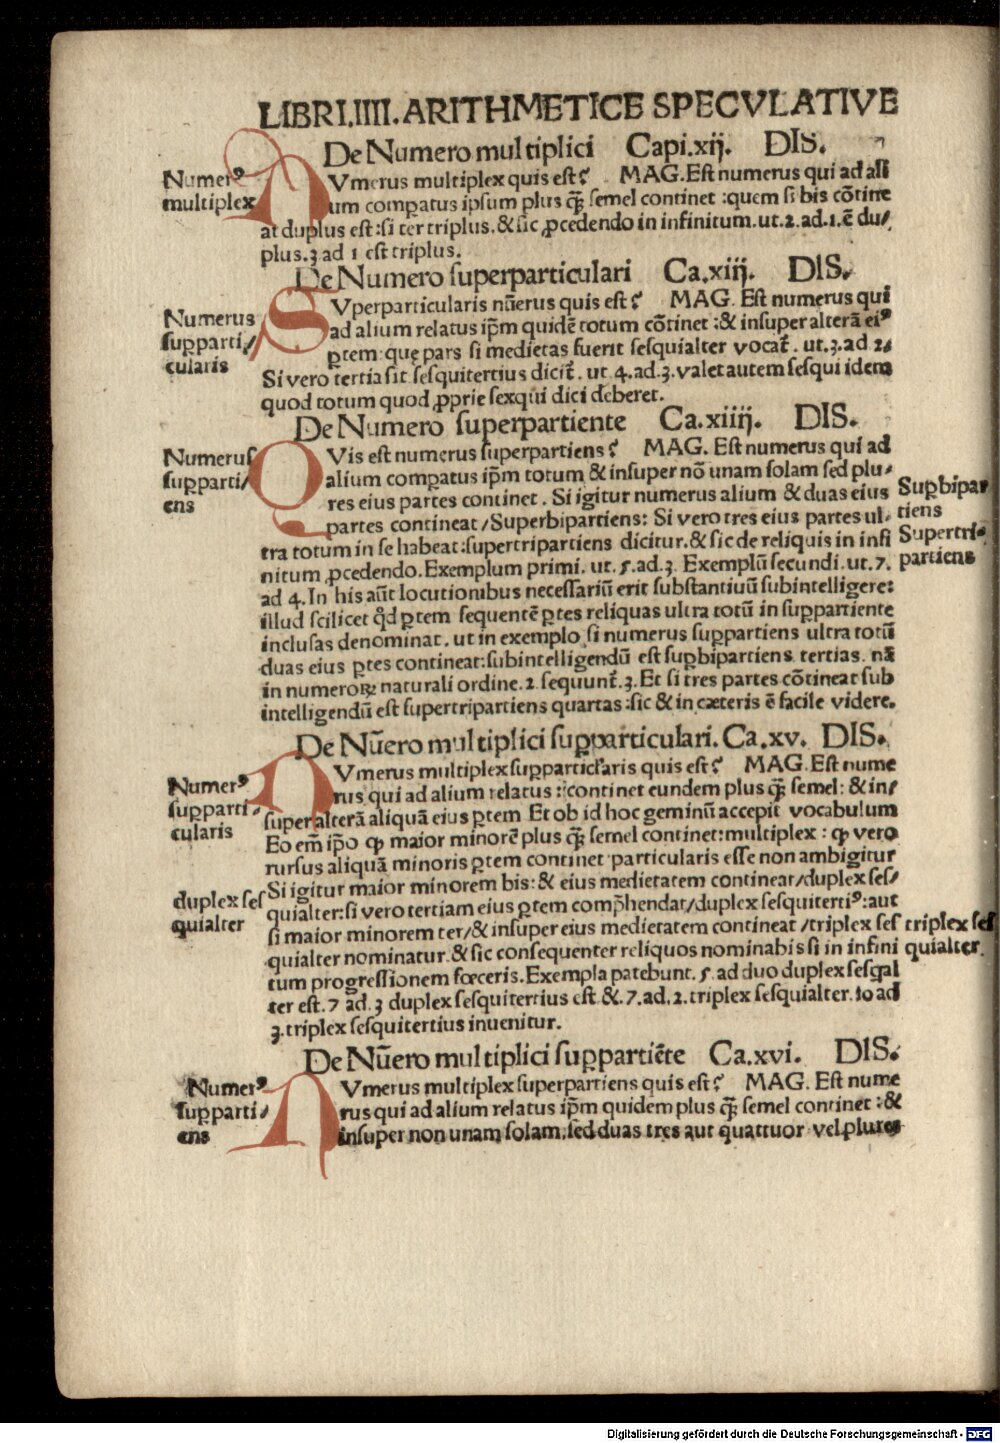 LIBRI.IIII.ARITHMETICE SPECVLATIVE
De Numero multiplici Capi.xij. DIS.
Numerꝰ
multiplex
NVmerus multiplex quis est? MAG.Est numerus qui ad ali
um compatus ipsum plus qꝫ semel continet :quem si bis cõtine
at duplus est:si ter triplus.&sic ꝓcedendo in infinitum.ut.2.ad.1.ẽ du/
plus.3 ad 1 est triplus.
De Numero superparticulari Ca.xiij. DIS.
Numerus
suꝑparti/
cularis
SVperparticularis nũerus quis est? MAG. Est numerus qui
ad alium relatus ip̃m quidẽ totum cõtinet :& insuper alterã eiꝰ
ꝑtem: quę pars si medietas fuerit sesquialter vocat̃. ut.3.ad 2.
Si vero tertia sit sesquitertius dicit̃. ut 4.ad.3.valet autem sesqui idem
quod totum quod ꝓprie sexqui dici deberet.
De Numero superpartiente Ca.xiiij. DIS.
Numerus
suꝑparti/
ens
QVis est numerus superpartiens? MAG. Est numerus qui ad
alium compatus ip̃m totum & insuper nõ unam solam sed plu/
res eius partes continet. Si igitur numerus alium & duas eius
partes contineat/Superbipartiens: Si vero tres eius partes ul/
tra totum in se habeat:supertripartiens dicitur.& sic de reliquis in infi
nitum ꝓcedendo.Exemplum primi. ut. 5.ad.3. Exemplũ secundi.ut.7.
ad 4.In his aũt locutionibus necessariũ erit substantiuũ subintelligere:
illud scilicet qd̃ ꝑtem sequentẽ ꝑtes reliquas ultra totũ in suꝑpartiente
inclusas denominat. ut in exemplo si numerus suꝑpartiens ultra totũ
duas eius ꝑtes contineat:subintelligendũ est suꝑbipartiens tertias. nã
in numeroꝝ naturali ordine.2 sequunt̃.3.Et si tres partes cõtineat sub
intelligendũ est supertripartiens quartas :sic & in cæteris ẽ facile videre.
Suꝑbipar
tiens
Supertri/
partiens
De Nũero multiplici suꝑparticulari.Ca.xv. DIS.
Numerꝰ
suꝑparti/
cularis
NVmerus multiplex suꝑparticl̃aris quis est? MAG.Est nume
rus qui ad alium relatus :continet eundem plus qꝫ semel: & in/
super alterã aliquã eius ꝑtem Et ob id hoc geminũ accepit vocabulum
Eo em̃ ip̃o ꝙ maior minorẽ plus qꝫ semel continet:multiplex : ꝙ vero
rursus aliquã minoris ꝑtem continet particularis esse non ambigitur
Si igitur maior minorem bis:& eius medietatem contineat/duplex ses/
quialter:si vero tertiam eius ꝑtem comp̃hendat/duplex sesquitertiꝰ:aut
si maior minorem ter/& insuper eius medietatem contineat /triplex ses
quialter nominatur.& sic consequenter reliquos nominabis si in infini
tum progressionem fœceris.Exempla patebunt. 5. ad duo duplex sesq̃al
ter est.7 ad.3 duplex sesquitertius est.&.7.ad.2.triplex sesquialter.10 ad
3.triplex sesquitertius inuenitur.
duplex ses
quialter
triplex ses
quialter.
De Nũero multiplici suꝑpartiẽte Ca.xvi. DIS.
Numerꝰ
suꝑparti/
ens
NVmerus multiplex superpartiens quis est? MAG. Est nume
rus qui ad alium relatus ip̃m quidem plus qꝫ semel continet :&
insuper non unam solam:sed duas tres aut quattuor vel plures
Digitalisierung gefördert durch die Deutsche Forschungsgemeinschaft - DFG